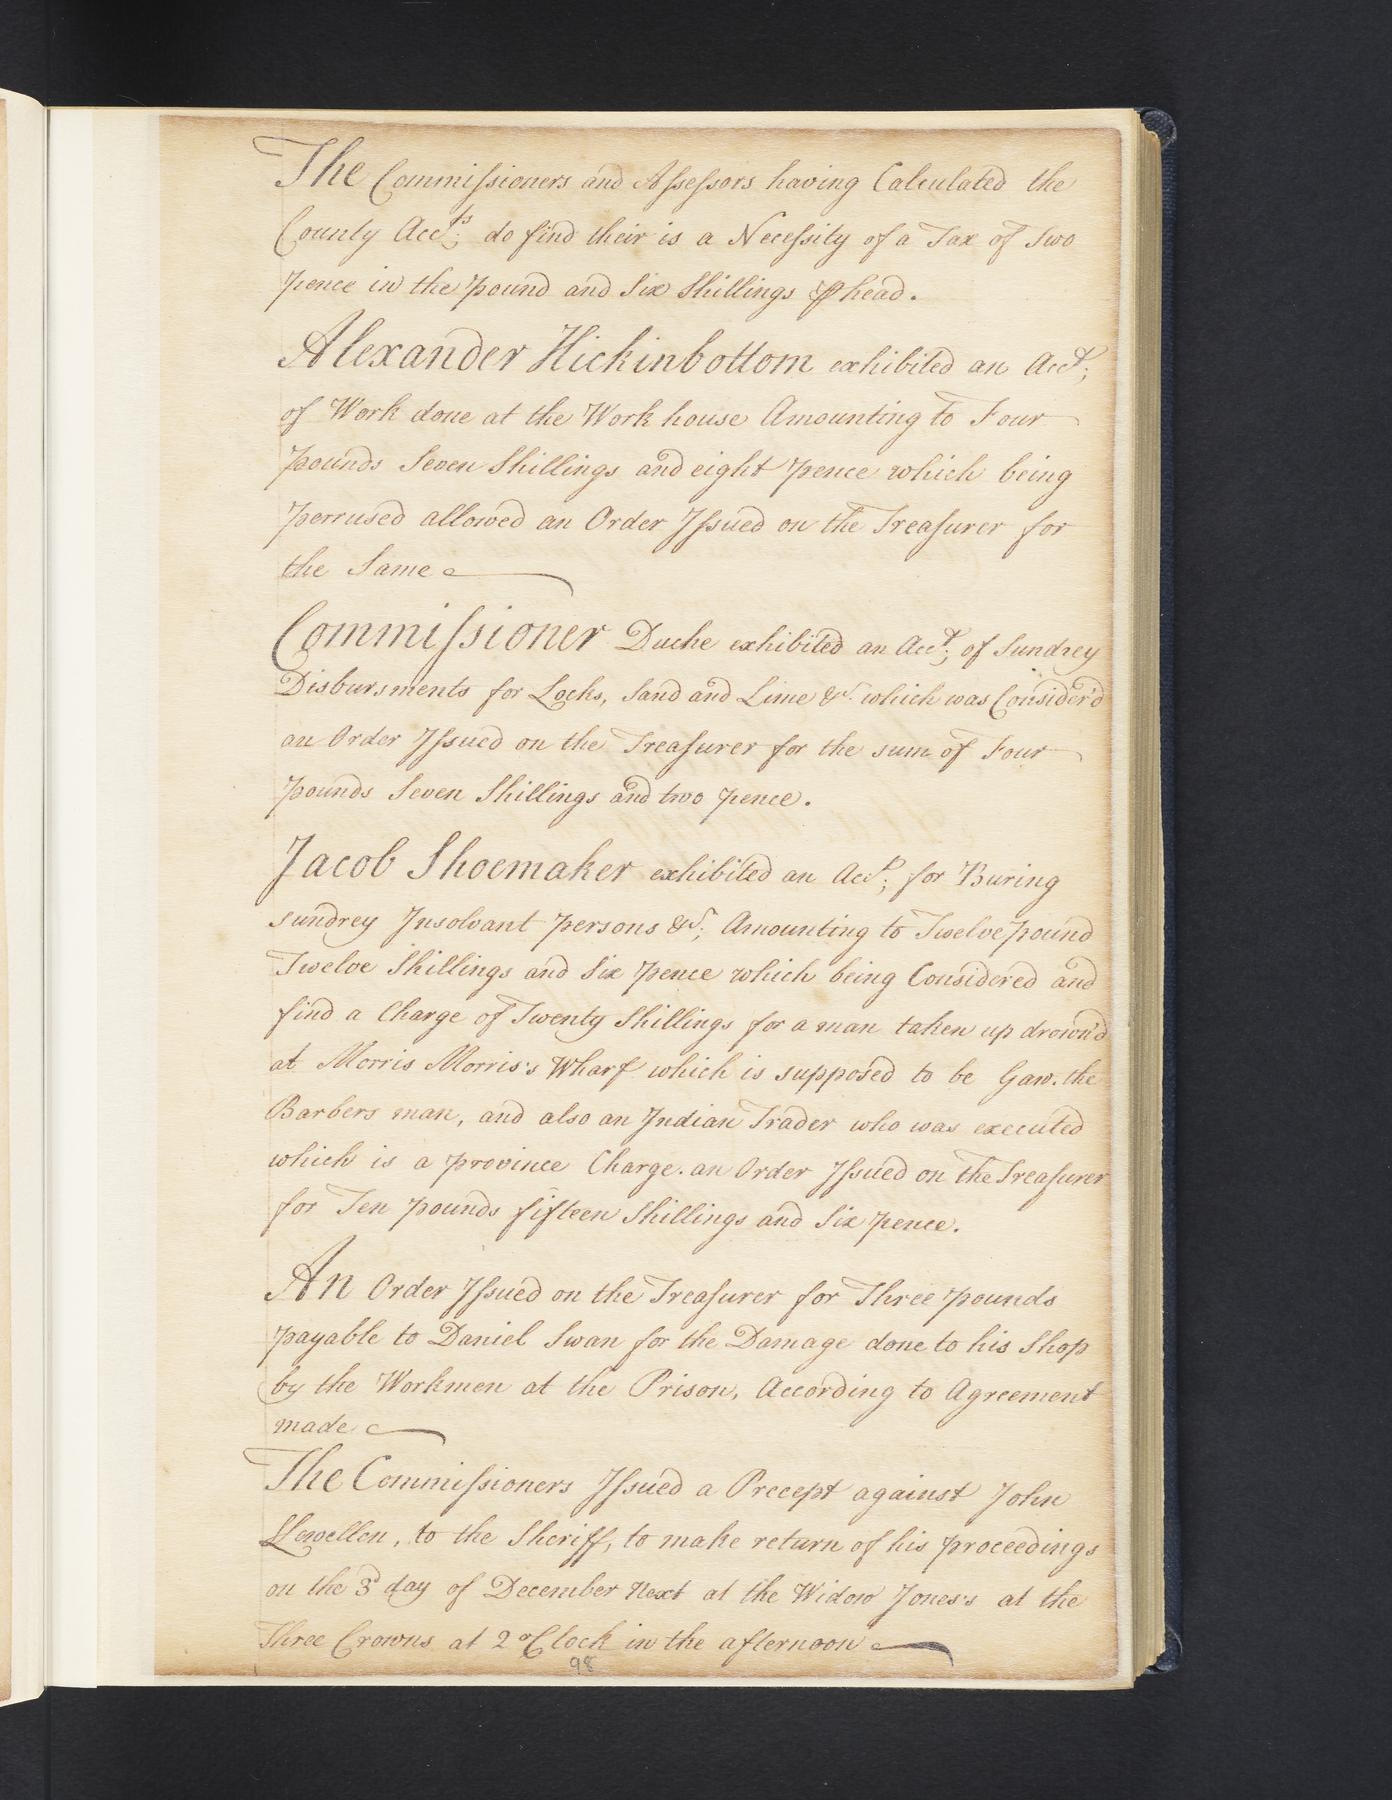 The Commissioners and Assessors having Calculated the
County Accts; do find their is a Necessity of a Tax of Two
pence in the pound and Six Shillings ⅌ head.
Alexander Hickinbottom exhibited an Acct;
of Work done at the Work house Amounting to Four
pounds Seven Shillings and eight pence which being
perrused allowed an Order Issued on the Treasurer for
the Same
Commissioner Duche exhibited an Acct; of Sundrey
Disbursments for Locks, Sand and Lime &c. which was Consider'd
an Order Issued on the Treasurer for the sum of Four
pounds Seven Shillings and two pence.
Jacob Shoemaker exhibited an Acct; for Buring
sundrey Insolvant persons &c; Amounting to Twelve pound
Twelve Shillings and Six pence which being Considered and
find a Charge of Twenty Shillings for a man taken up drown'd
at Morris Morris's Wharf which is supposed to be Gaw. the
Barbers man, and also an Indian Trader who was executed
which is a province Charge. an Order Issued on the Treasurer
for Ten pounds fifteen Shillings and Six pence.
An Order Issued on the Treasurer for Three pounds
payable to Daniel Swan for the Damage done to his Shop
by the Workmen at the Prison, According to Agreement
made
The Commissioners Issued a Precept against John
Llewellen, to the Sheriff, to make return of his proceedings
on the 3d day of December Next at the Widow Jones's at the
Three Crowns at 2 o'Clock in the afternoon
98